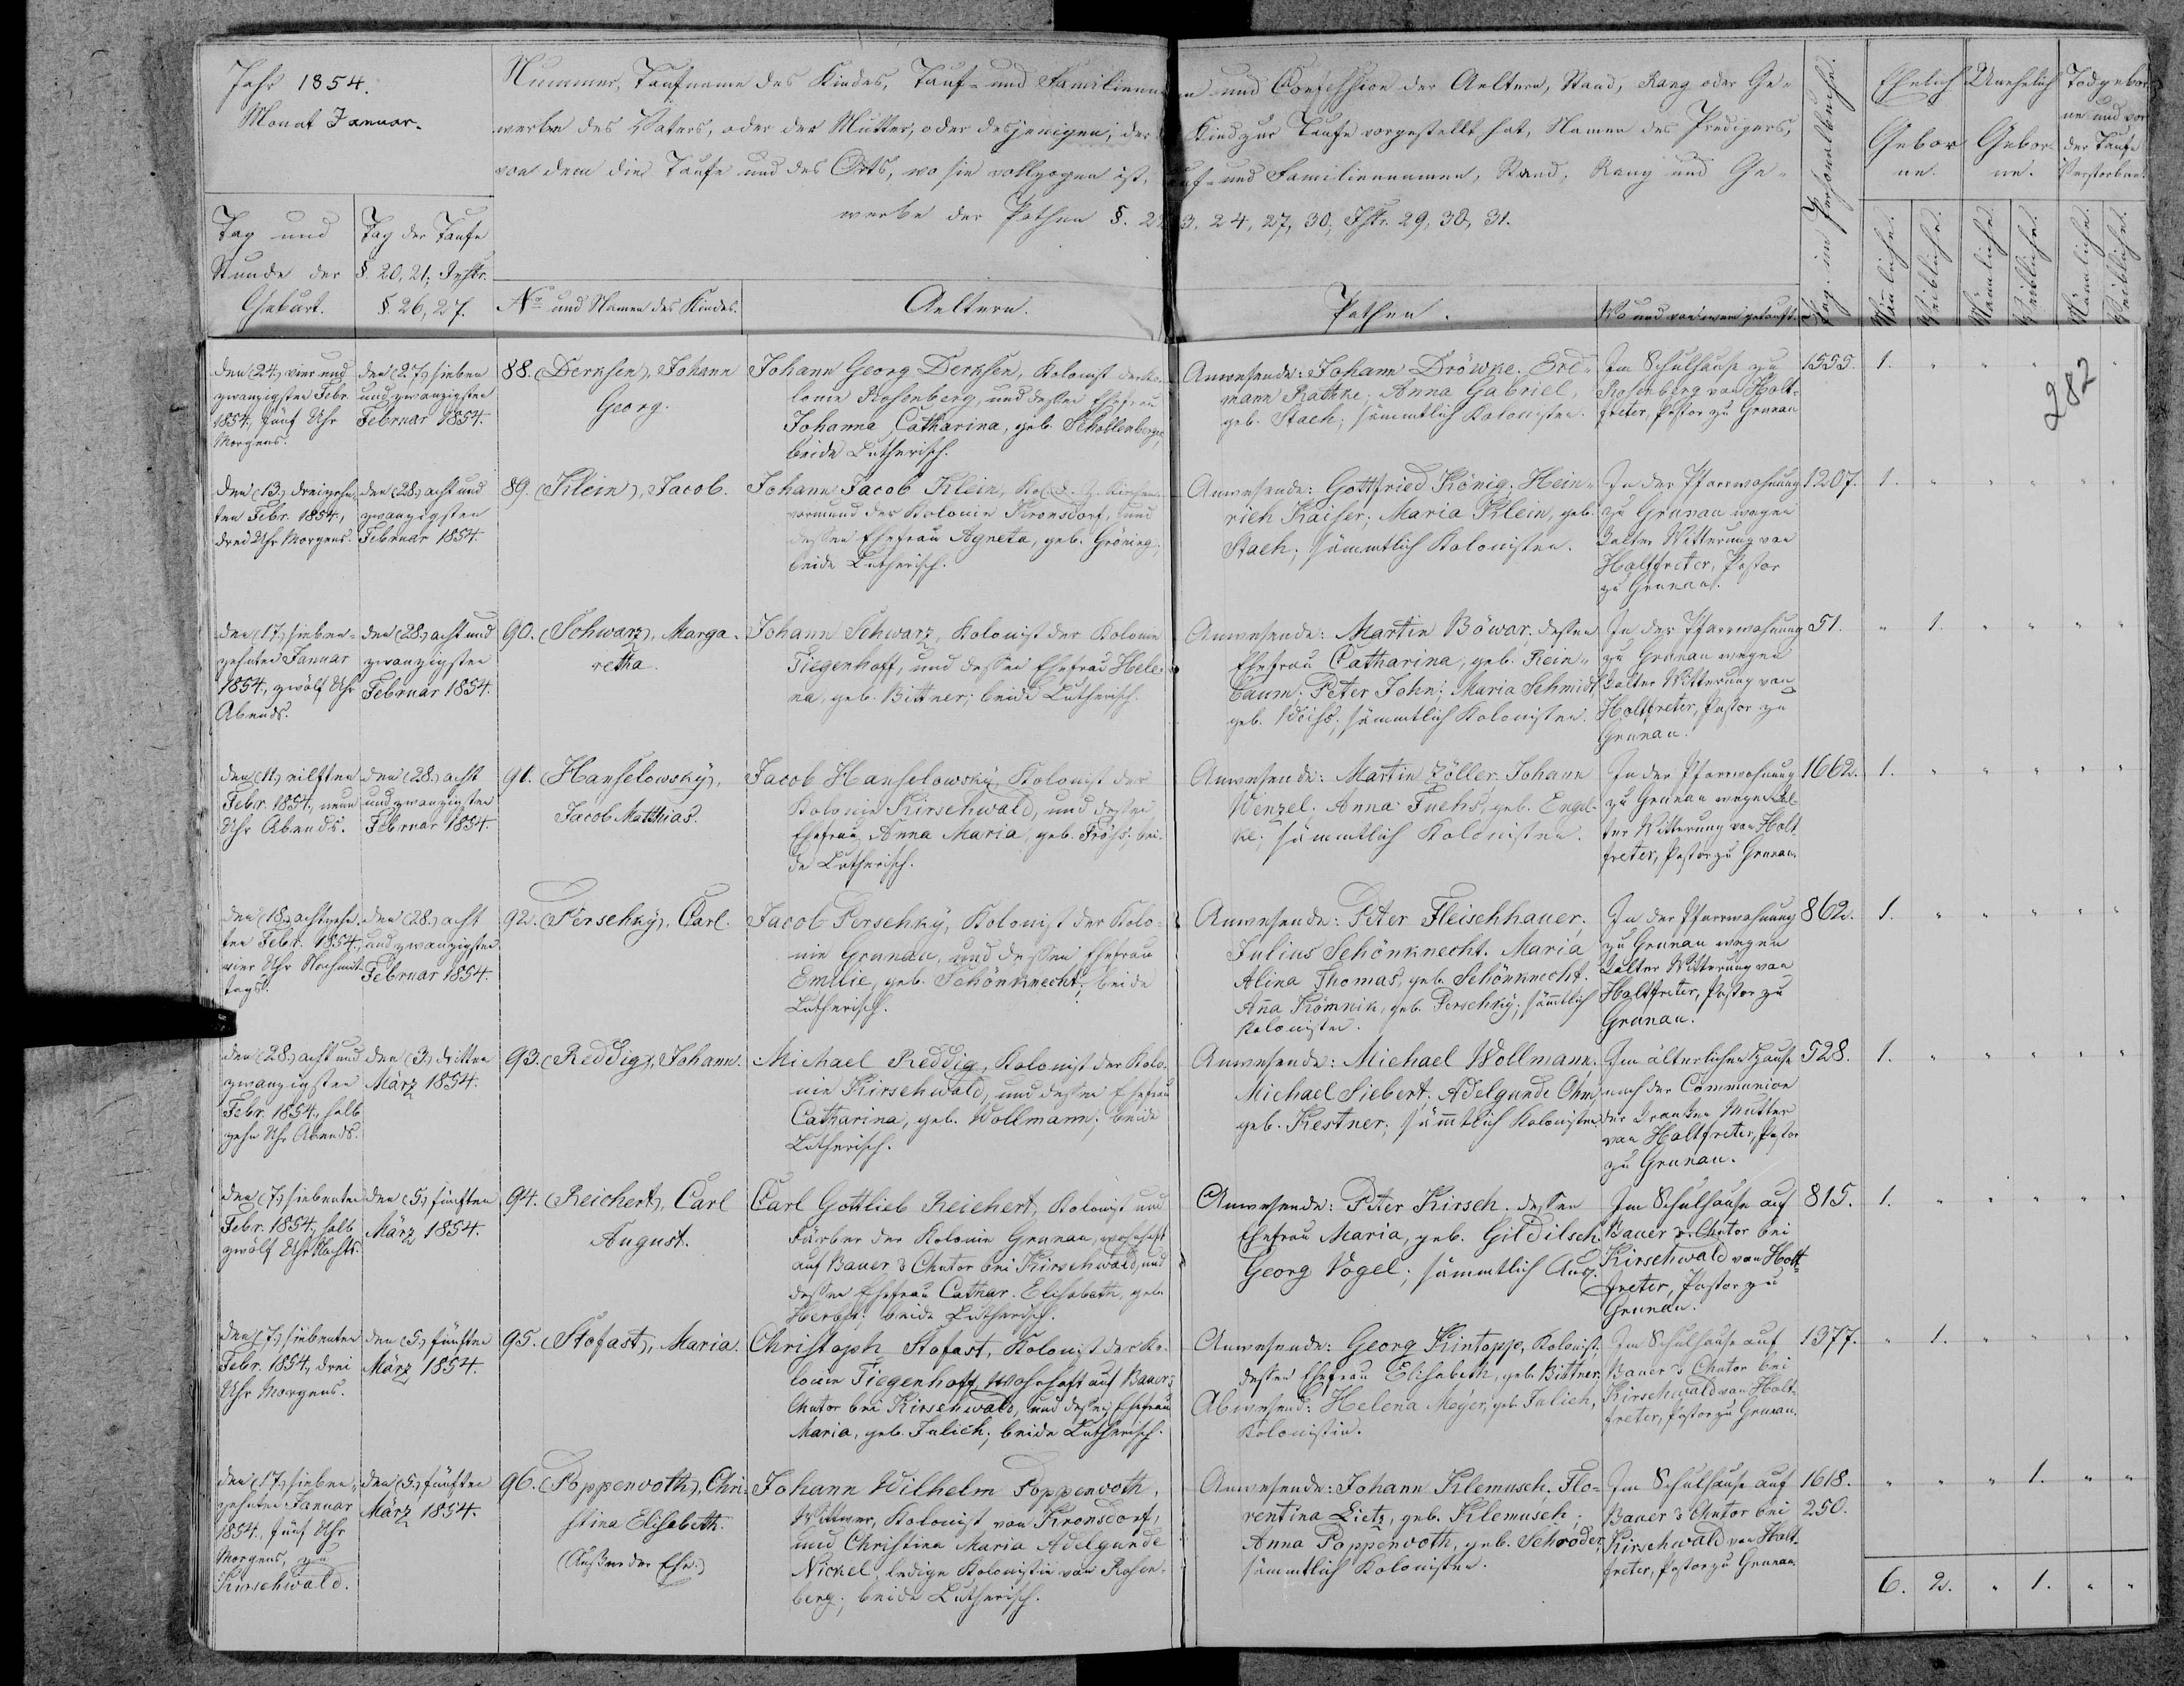 Jahr 1854.
Monat Januar.
Tag und
Stunde der
Geburt.
Tag der Taufe
§. 20, 21; Instr.
§. 26, 27.
Nummer, Taufname des Kindes, Tauf- und Familienna[...]n und Confession der Aeltern, Stand, Rang oder Ge-
werbe des Vaters, oder der Mutter, oder desjenigen, der d[...] Kind zur Taufe vorgestellt hat, Namen des Predigers,
von dem die Taufe und des Orts, wo sie vollzogen ist, [...]auf- und Familiennamen, Stand, Rang und Ge-
werbe der Pathen §. 22[...]3, 24, 27, 30; Istr. 29, 30, 31.
No und Namen des Kindes.
Aeltern.
Pathen.
Wo und von wem getauft.
Pag. im Personalbuche.
Ehelich
Gebor
ne.
Unehelich
Gebor-
ne.
Todgebor
ne und vor
der Taufe
Verstorbne.
Männliche.
Weibliche.
Männliche.
Weibliche.
Männliche.
Weibliche.
282
den (24.) vier und
zwanzigsten Febr.
1854, fünf Uhr
Morgens.
den (27.) sieben
und zwanzigsten
Februar 1854.
88. (Derksen), Johann
Georg.
Johann Georg Derksen, Kolonist der Ko-
lonie Rosenberg, und dessen Ehefrau
Johanna Catharina, geb. Schollenberger,
beide Lutherisch.
Anwesende: Johann Dröwke. Erd-
mann Rathke; Anna Gabriel,
geb. Stach; sämmtlich Kolonisten.
Im Schulhause zu
Rosenberg von Holt-
freter, Pastor zu Grunau
1555. 1. " " " " "
den (13.) dreizehn-
ten Febr. 1854,
drei Uhr Morgens.
den (28.) acht und
zwanzigsten
Februar 1854.
89. (Klein), Jacob.
Johann Jacob Klein, Kol. d. Z. Kirchen-
vormund der Kolonie Kronsdorf, und
dessen Ehefrau Agneta, geb. Gröning;
beide Lutherisch.
Anwesende: Gottfried König. Hein-
rich Kaiser; Maria Klein, geb.
Stach; sämmtlich Kolonisten.
In der Pfarrwohnung
zu Grunau wegen
kalter Witterung von
Holtfreter, Pastor
zu Grunau.
1207. 1. " " " " "
den (17.) sieben-
zehnten Januar
1854, zwölf Uhr
Abends.
den (28.) acht und
zwanzigsten
Februar 1854.
90. (Schwarz), Marga-
retha.
Johann Schwarz, Kolonist der Kolonie
Tiegenhoff, und dessen Ehefrau Hele-
na, geb. Bittner; beide Lutherisch.
Anwesende: Martin Böwar. dessen
Ehefrau Catharina, geb. Rein-
baum; Peter John; Maria Schmidt
geb. Weiss, sämmtlich Kolonisten.
In der Pfarrwohnung
zu Grunau wegen
kalter Witterung von
Holtfreter, Pastor zu
Grunau.
51. " 1. " " " "
den (11.) eilften
Febr. 1854, neun
Uhr Abends.
den (28.) acht
und zwanzigsten
Februar 1854.
91. (Hanselowsky),
Jacob Matthias.
Jacob Hanselowsky, Kolonist der
Kolonie Kirschwald, und dessen
Ehefrau Anna Maria, geb. Fröss; bei-
de Lutherisch.
Anwesende: Martin Zöller. Johann
Wenzel. Anna Fuchs, geb. Engel-
ke; sämmtlich Kolonisten.
In der Pfarrwohnung
zu Grunau wegen kal-
ter Witterung von Holt
freter, Pastor zu Grunau.
1662. 1. " " " " "
den (18.) achtzehn-
ten Febr. 1854,
vier Uhr Nachmit-
tags.
den (28.) acht
und zwanzigsten
Februar 1854.
92. (Perschky), Carl.
Jacob Perschky, Kolonist der Kolo-
nie Grunau, und dessen Ehefrau
Emilie, geb. Schönknecht; beide
Lutherisch.
Anwesende: Peter Fleischhauer.
Julius Schönknecht. Maria
Alina Thomas, geb. Schönknecht.
Anna Kömnik, geb. Perschky; sämtlich
Kolonisten.
In der Pfarrwohnung
zu Grunau wegen
kalter Witterung von
Holtfreter, Pastor zu
Grunau.
862. 1. " " " " "
den (28.) acht und
zwanzigsten
Febr. 1854, halb
zehn Uhr Abends.
den (3.) dritten
März 1854.
93. (Reddig), Johann.
Michael Reddig, Kolonist der Kolo-
nie Kirschwald, und dessen Ehefrau
Catharina, geb. Wollmann; beide
Lutherisch.
Anwesende: Michael Wollmann.
Michael Siebert; Adelgunde Ohm,
geb. Kestner; sämtlich Kolonisten.
Im älterlichen Hause
nach der Communion
der kranken Mutter
von Holtfreter, Pastor
zu Grunau.
528. 1. " " " " "
den (7.) siebenten
Febr. 1854, halb
zwölf Uhr Nachts.
den (5.) fünften
März 1854.
94. (Reichert), Carl
August.
Carl Gottlieb Reichert, Kolonist und
Färber der Kolonie Grunau, wohnhaft
auf Bauer's Chutor bei Kirschwald, und
dessen Ehefrau Cathar. Elisabeth, geb.
Herbst; beide Lutherisch.
Anwesende: Peter Kirsch. dessen
Ehefrau Maria, geb. Gildilsch.
Georg Vogel; sämmtlich Ausz.
Im Schulhause auf
Bauer's Chutor bei
Kirschwald von Holt-
freter, Pastor zu
Grunau.
815. 1. " " " " "
den (7.) siebenten
Febr. 1854, drei
Uhr Morgens.
den (5.) fünften
März 1854.
95. (Stofast), Maria.
Christoph Stofast, Kolonist der Ko-
lonie Tiegenhoff, wohnhaft auf Bauer's
Chutor bei Kirschwald, und dessen Ehefrau
Maria, geb. Julich; beide Lutherisch.
Anwesende: Georg Kintopp, Kolonist;
dessen Ehefrau Elisabeth, geb. Bittner.
Abwesend: Helena Meyer, geb. Julich,
Kolonistin.
Im Schulhause auf
Bauer's Chutor bei
Kirschwald von Holt-
freter, Pastor zu Grunau.
1377. " 1. " " " "
den (17.) sieben-
zehnten Januar
1854, fünf Uhr
Morgens, zu
Kirschwald.
den (5.) fünften
März 1854.
96. (Poppenroth), Chri-
stina Elisabeth.
(Außer der Ehe.)
Johann Wilhelm Poppenroth,
Wittwer, Kolonist von Kronsdorf,
und Christina Maria Adelgunde
Nickel, ledige Kolonistin von Rosen-
berg; beide Lutherisch.
Anwesende: Johann Klemusch. Flo-
rentina Lietz, geb. Klemusch;
Anna Poppenroth, geb. Schröder,
sämmtlich Kolonisten.
Im Schulhause auf
Bauer's Chutor bei
Kirschwald von Holt-
freter, Pastor zu Grunau.
1618.
250.
" " " 1. " "
6. 2. " 1. " "